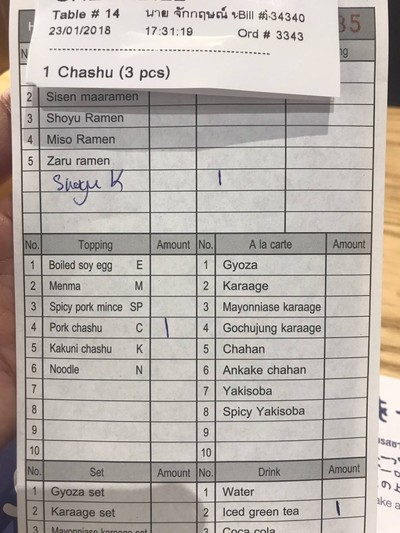 Table # 14 นาย จักกฤษณ์ Bill #: 34340
23/01/2018 17:31:19 Ord # 3343
1 Chashu (3 pcs)
2 Sisen maaramen
3 Shoyu Ramen
4 Miso Ramen
5 Zaru ramen
Shoyu K 1
No. Topping Amount No. A la carte Amount
1 Boiled soy egg E 1 Gyoza
2 Menma M 2 Karaage
3 Spicy pork mince SP 3 Mayonniase karaage
4 Pork chashu C 1 4 Gochujung karaage
5 Kakuni chashu K 5 Chahan
6 Noodle N 6 Ankake chahan
7 7 Yakisoba
8 8 Spicy Yakisoba
9 9
10 10
No. Set Amount No. Drink Amount
1 Gyoza set 1 Water
2 Karaage set 2 Iced green tea 1
3 Mayonniase karaage set 3 Coca cola